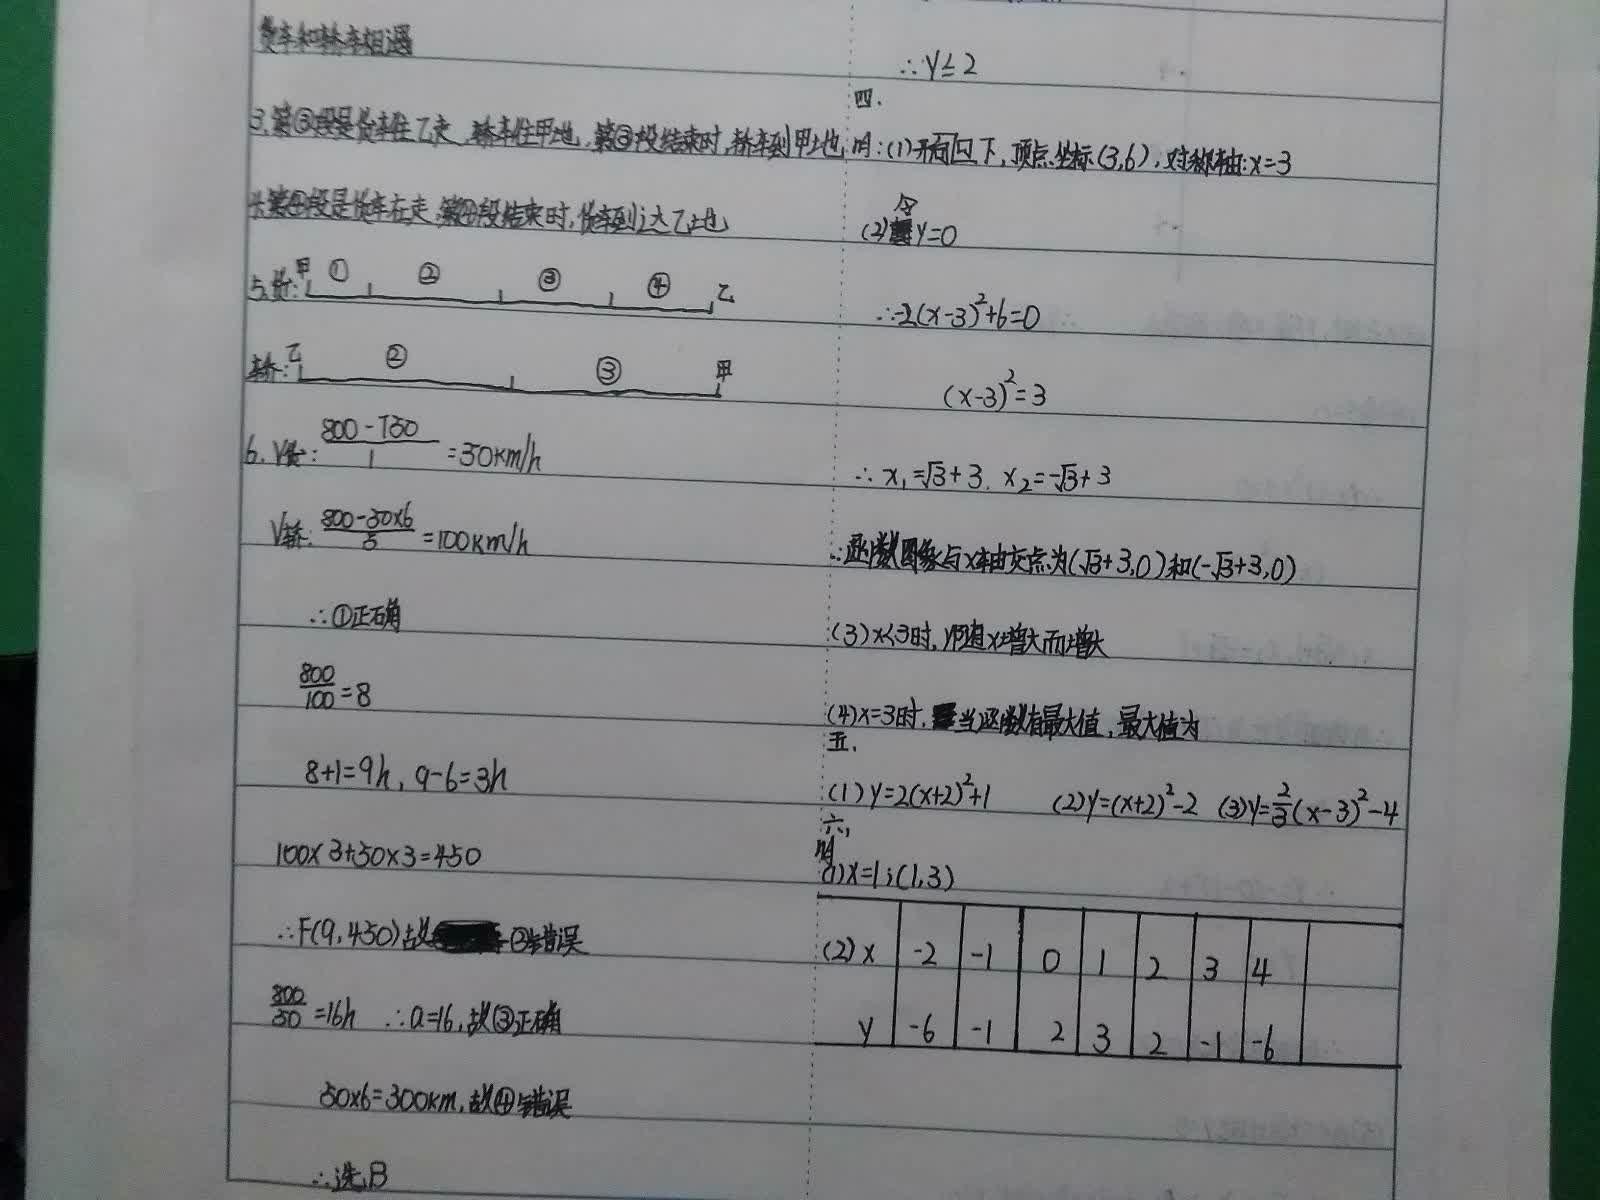 货车和轿车相遇
3.第③段是货车往乙走,轿车往甲地,第③段结束时,轿车到甲地
4.第④段是货车在走,第④段结束时,货车到达乙地
5.货: 甲 ① ② ③ ④ 乙
轿: 乙 ② ③ 甲
6. V货: (800-750)/1 =50km/h
V轿: (800-50×6)/5 =100km/h
∴①正确
800/100 =8
8+1=9h, 9-6=3h
100×3+50×3=450
∴F(9,450)故②错误
800/50 =16h ∴a=16,故③正确
50×6=300km,故④错误
∴选B
∴y≤2
四.
明:(1)开口下,顶点坐标(3,6),对称轴:x=3
(2)令y=0
∴-2(x-3)²+6=0
(x-3)²=3
∴x₁=√3+3. x₂=-√3+3
∴函数图象与x轴交点为(√3+3,0)和(-√3+3,0)
(3)x<3时,y随x增大而增大
(4)x=3时,当函数有最大值,最大值为
五.
(1)y=2(x+2)²+1 (2)y=(x+2)²-2 (3)y=2/3(x-3)²-4
六,
明
(1)x=1;(1,3)
(2) x -2 -1 0 1 2 3 4
y -6 -1 2 3 2 -1 -6